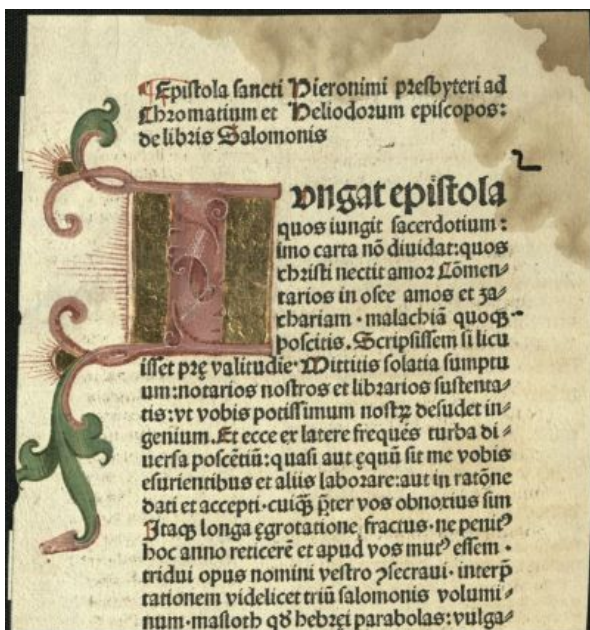 Epistola sancti Hieronimi presbyteri ad
Chromatium et Heliodorum episcopos:
de libris Salomonis
Ivngat epistola
quos iungit sacerdotium:
imo carta nō diuidat: quos
christi nectit amor Cōmen⸗
tarios in osce amos et za⸗
chariam · malachiā quoqꝫ
poscitis. Scripsissem si licu
isset prę valitudie· Mittitis solatia sumptu
um: notarios nostros et librarios sustenta⸗
tis: vt vobis potissimum nostꝝ desudet in⸗
genium. Et ecce ex latere frequēs turba di⸗
uersa poscētiū: quasi aut ęquū sit me vobis
esurientibus et aliis laborare: aut in ratōne
dati et accepti· cuiqꝫ p̄ter vos obnoxius sim
Itaqꝫ longa ęgrotatione fractus· ne penitꝰ
hoc anno reticerē et apud vos mutꝰ essem ·
tridui opus nomini vestro ꝯsecraui· interp̄
tationem videlicet triū salomonis volumi⸗
num· masloth qđ hebręi parabolas: vulga⸗